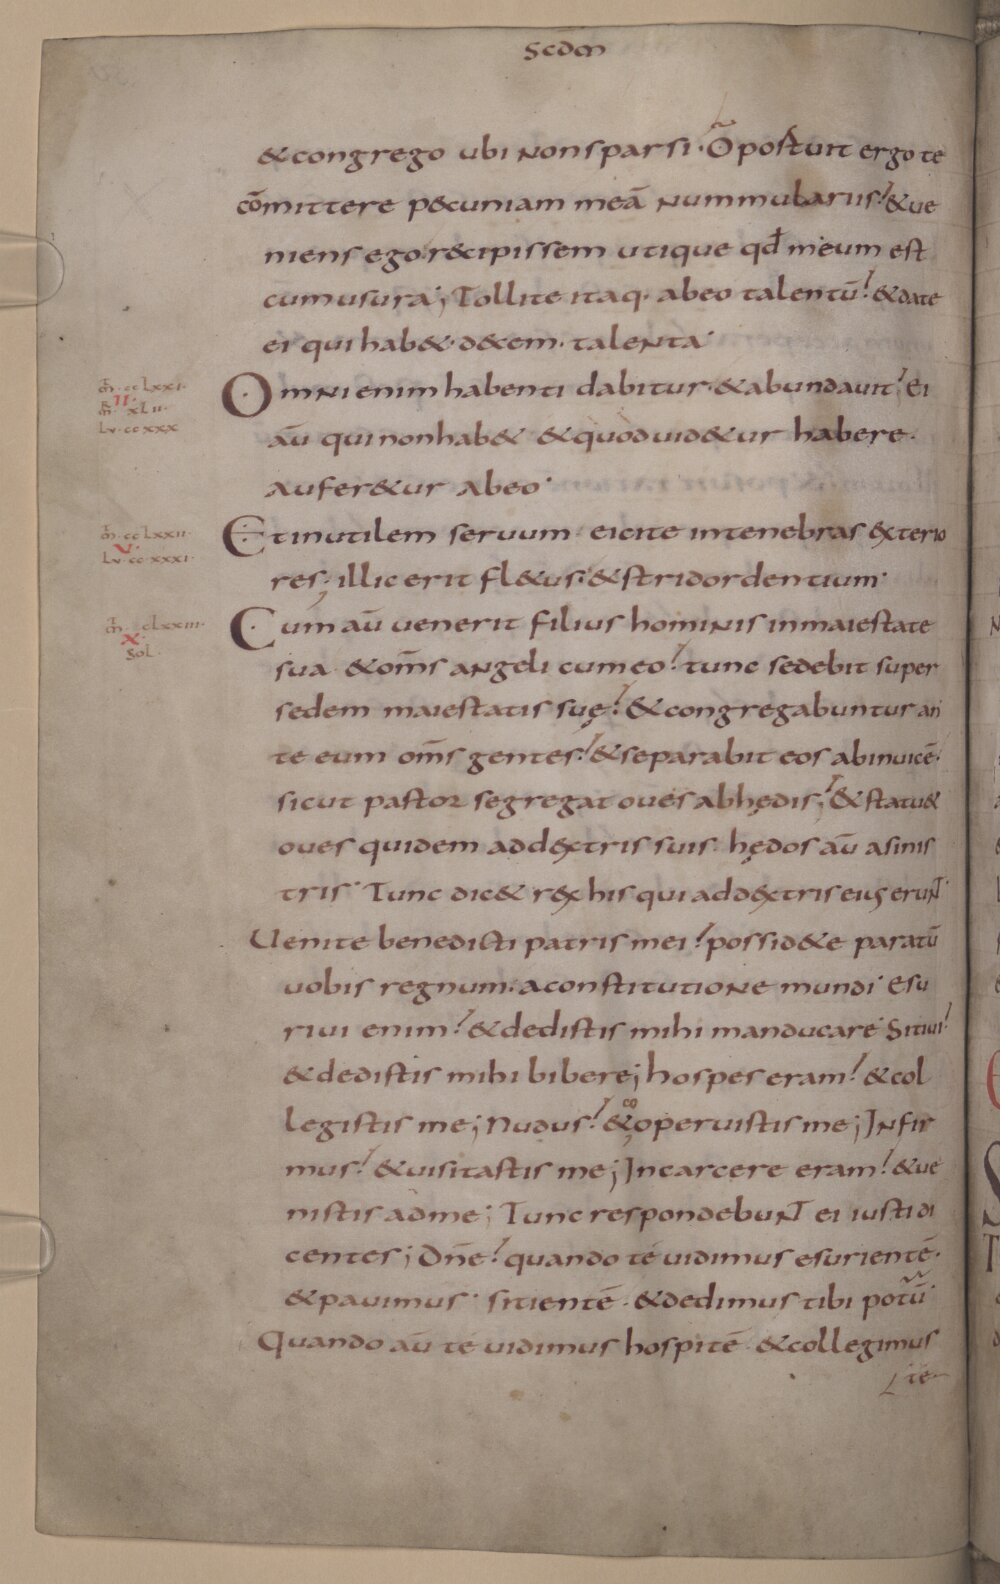 Scdm
& congrego ubi non sparsi· Ōpostuit ergo te
cōmittere pecuniam meā nummulariis? & ue
niens ego recipissem utique qđ meum est
cum usura; Tollite itaq· abeo talentū? & date
ei qui hab& decem talenta·
m̄ cclxxi·
II
m̄ xlii·
Lv· ccxxx
Omni enim habenti dabitur· & abundauit; Ei
aū qui non hab& & quod uid&ur habere·
aufer&ur abeo·
m̄ cclxxii·
V
Lv· ccxxxi·
Et inutilem seruum eicite in tenebras exterio
res; illic erit fl&us· & stridor dentium·
m̄ cclxxiii·
X
Sol·
Cum aū uenerit filius hominis in maiestate
sua & om̄s angeli cum eo? tunc sedebit super
sedem maiestatis suę? & congregabuntur an
te eum om̄s gentes? & separabit eos abinuicē·
sicut pastor segregat oues ab hędis; & statu&
oues quidem ad dextris suis hędos aū a sinis
tris· Tunc dic& rex his qui ad dextris eius erunt·
Uenite benedicti patris mei? possid&e paratū
uobis regnum· a constitutione mundi· Esu
riui enim? & dedistis mihi manducare· Sitiui?
& dedistis mihi bibere; hospes eram? & col
legistis me; Nudus? &
co
operuistis me; Infir
mus? & uisitastis me; In carcere eram? & ue
nistis ad me; Tunc respondebunt ei iusti di
centes; Dn̄e? quando te uidimus esurientē·
& pauimus· sitientē· & dedimus tibi potū
Quando aū te uidimus hospitē & collegimus
te·